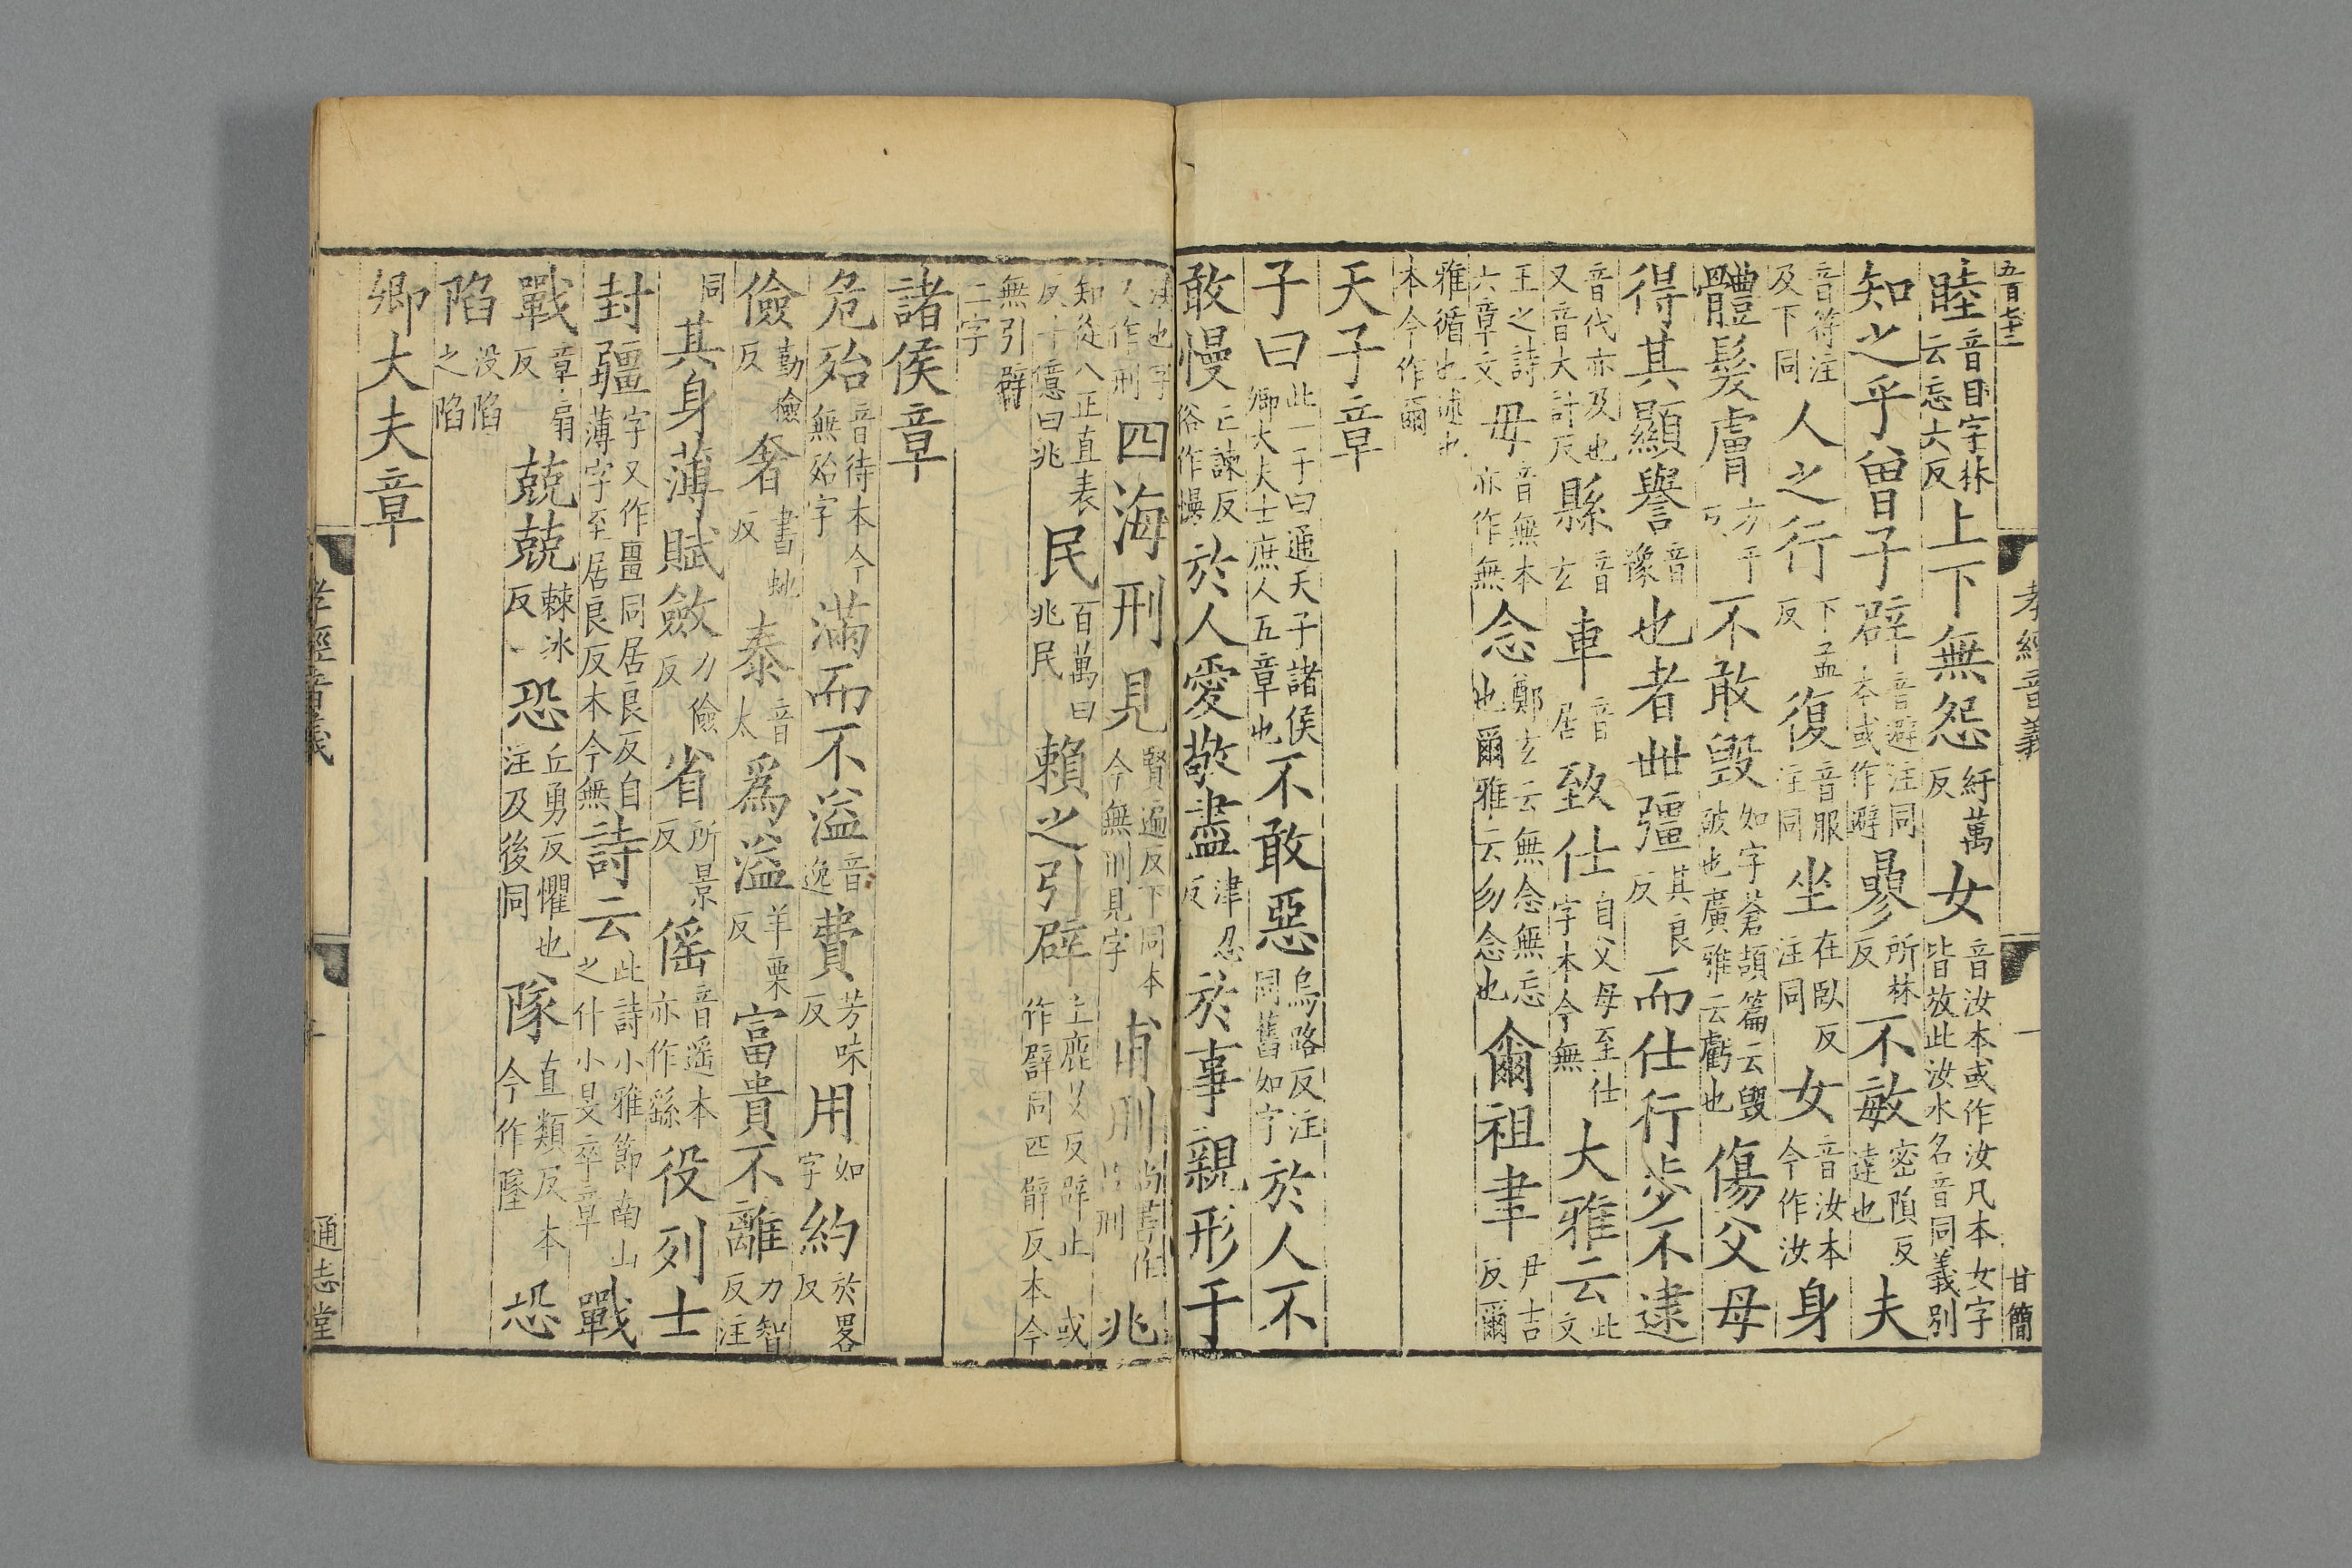 五百七十二
孝經音義
一
甘簡
睦音目字林云忘六反上下無怨紆萬反女音汝本或作汝凡本女字皆放此汝水名音同義別
知之乎曾子辟音避注同本或作避參所林反不敏密隕反達也夫
音符注及下同人之行下孟反復音服注同坐在臥反注同女音汝本今作汝身
體髮膚方于反不敢毀如字蒼頡篇云毀破也廣雅云虧也傷父母
得其顯譽音豫也者世彊其良反而仕行步不逮
音代亦及也又音大計反縣音玄車音居致仕自父母至仕字本今無大雅云此文
王之詩六章文毋音無本亦作無念鄭玄云無念無忘也爾雅云勿念也爾祖聿尹吉反爾
雅循也述也本今作爾
天子章
子曰此一子曰通天子諸侯卿大夫士庶人五章也不敢惡烏路反注同舊如字於人不
敢慢亡諫反俗作慢於人愛敬盡津忍反於事親形于
法也字又作刑四海刑見賢遍反下同本今無刑見字甫刑尚書作呂刑兆
知從八正直表反十億曰兆民百萬曰兆民賴之引辟
無引辟二字
諸侯章
危殆音待本今無殆字滿而不溢音逸費芳味反用如字約於畧反
儉勤儉反奢書虵反泰音太爲溢羊栗反富貴不離力智反注
同其身薄賦斂力儉反省所景反傜音遥本亦作繇役列士
封疆字又作畺同居良反自薄字至居良反本今無詩云此詩小雅節南山之什小旻卒章戰
戰章扇反兢兢棘冰反恐丘勇反懼也注及後同隊直類反本今作墜恐
陷没陷之陷
卿大夫章
孝經音義
通志堂